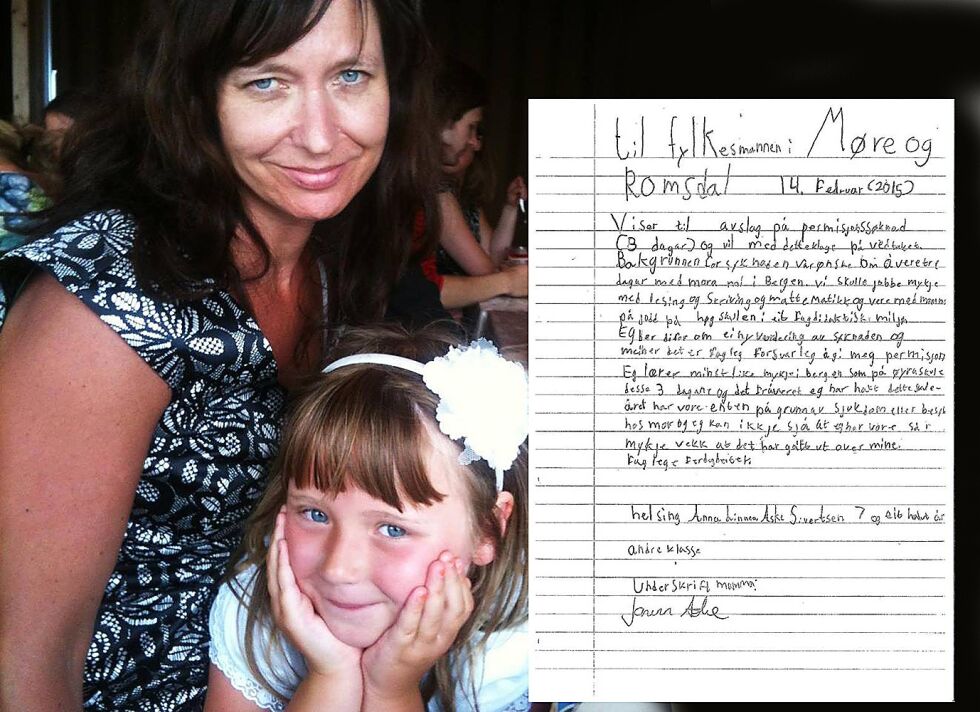 til fylkesmannen i Møre og
Romsdal 14. Februar (2015)
Viser til avslag på permisjonssøknad
(3 dagar) og vil med dette klage på vedtaket.
Bakgrunnen for søknaden var ønske om å vere tre
dagar med mora mi i Bergen. vi skulle jobbe mykje
med lesing og skriving og matte Matikk og vere med mamma
på jobb på høgskulen i eit fagdidaktisk miljø
Eg ber difor om ei ny vurdering av søknaden og
meiner det er fagleg forsvarleg å gi meg permisjon
Eg lærer minst like mykje i bergen som på øyra skule
desse 3 dagane og det fråveret eg har hatt dette skule-
året har vore enten på grunn av sjukdom eller besøk
hos mor og eg kan ikkje sjå at eg har vore så
mykje vekk at det har gått ut over mine
faglege ferdigheiter.
helsing Anna Linnea Aske Sivertsen 7 og eit halvt år
andre klasse
Underskrift mamma:
Aske